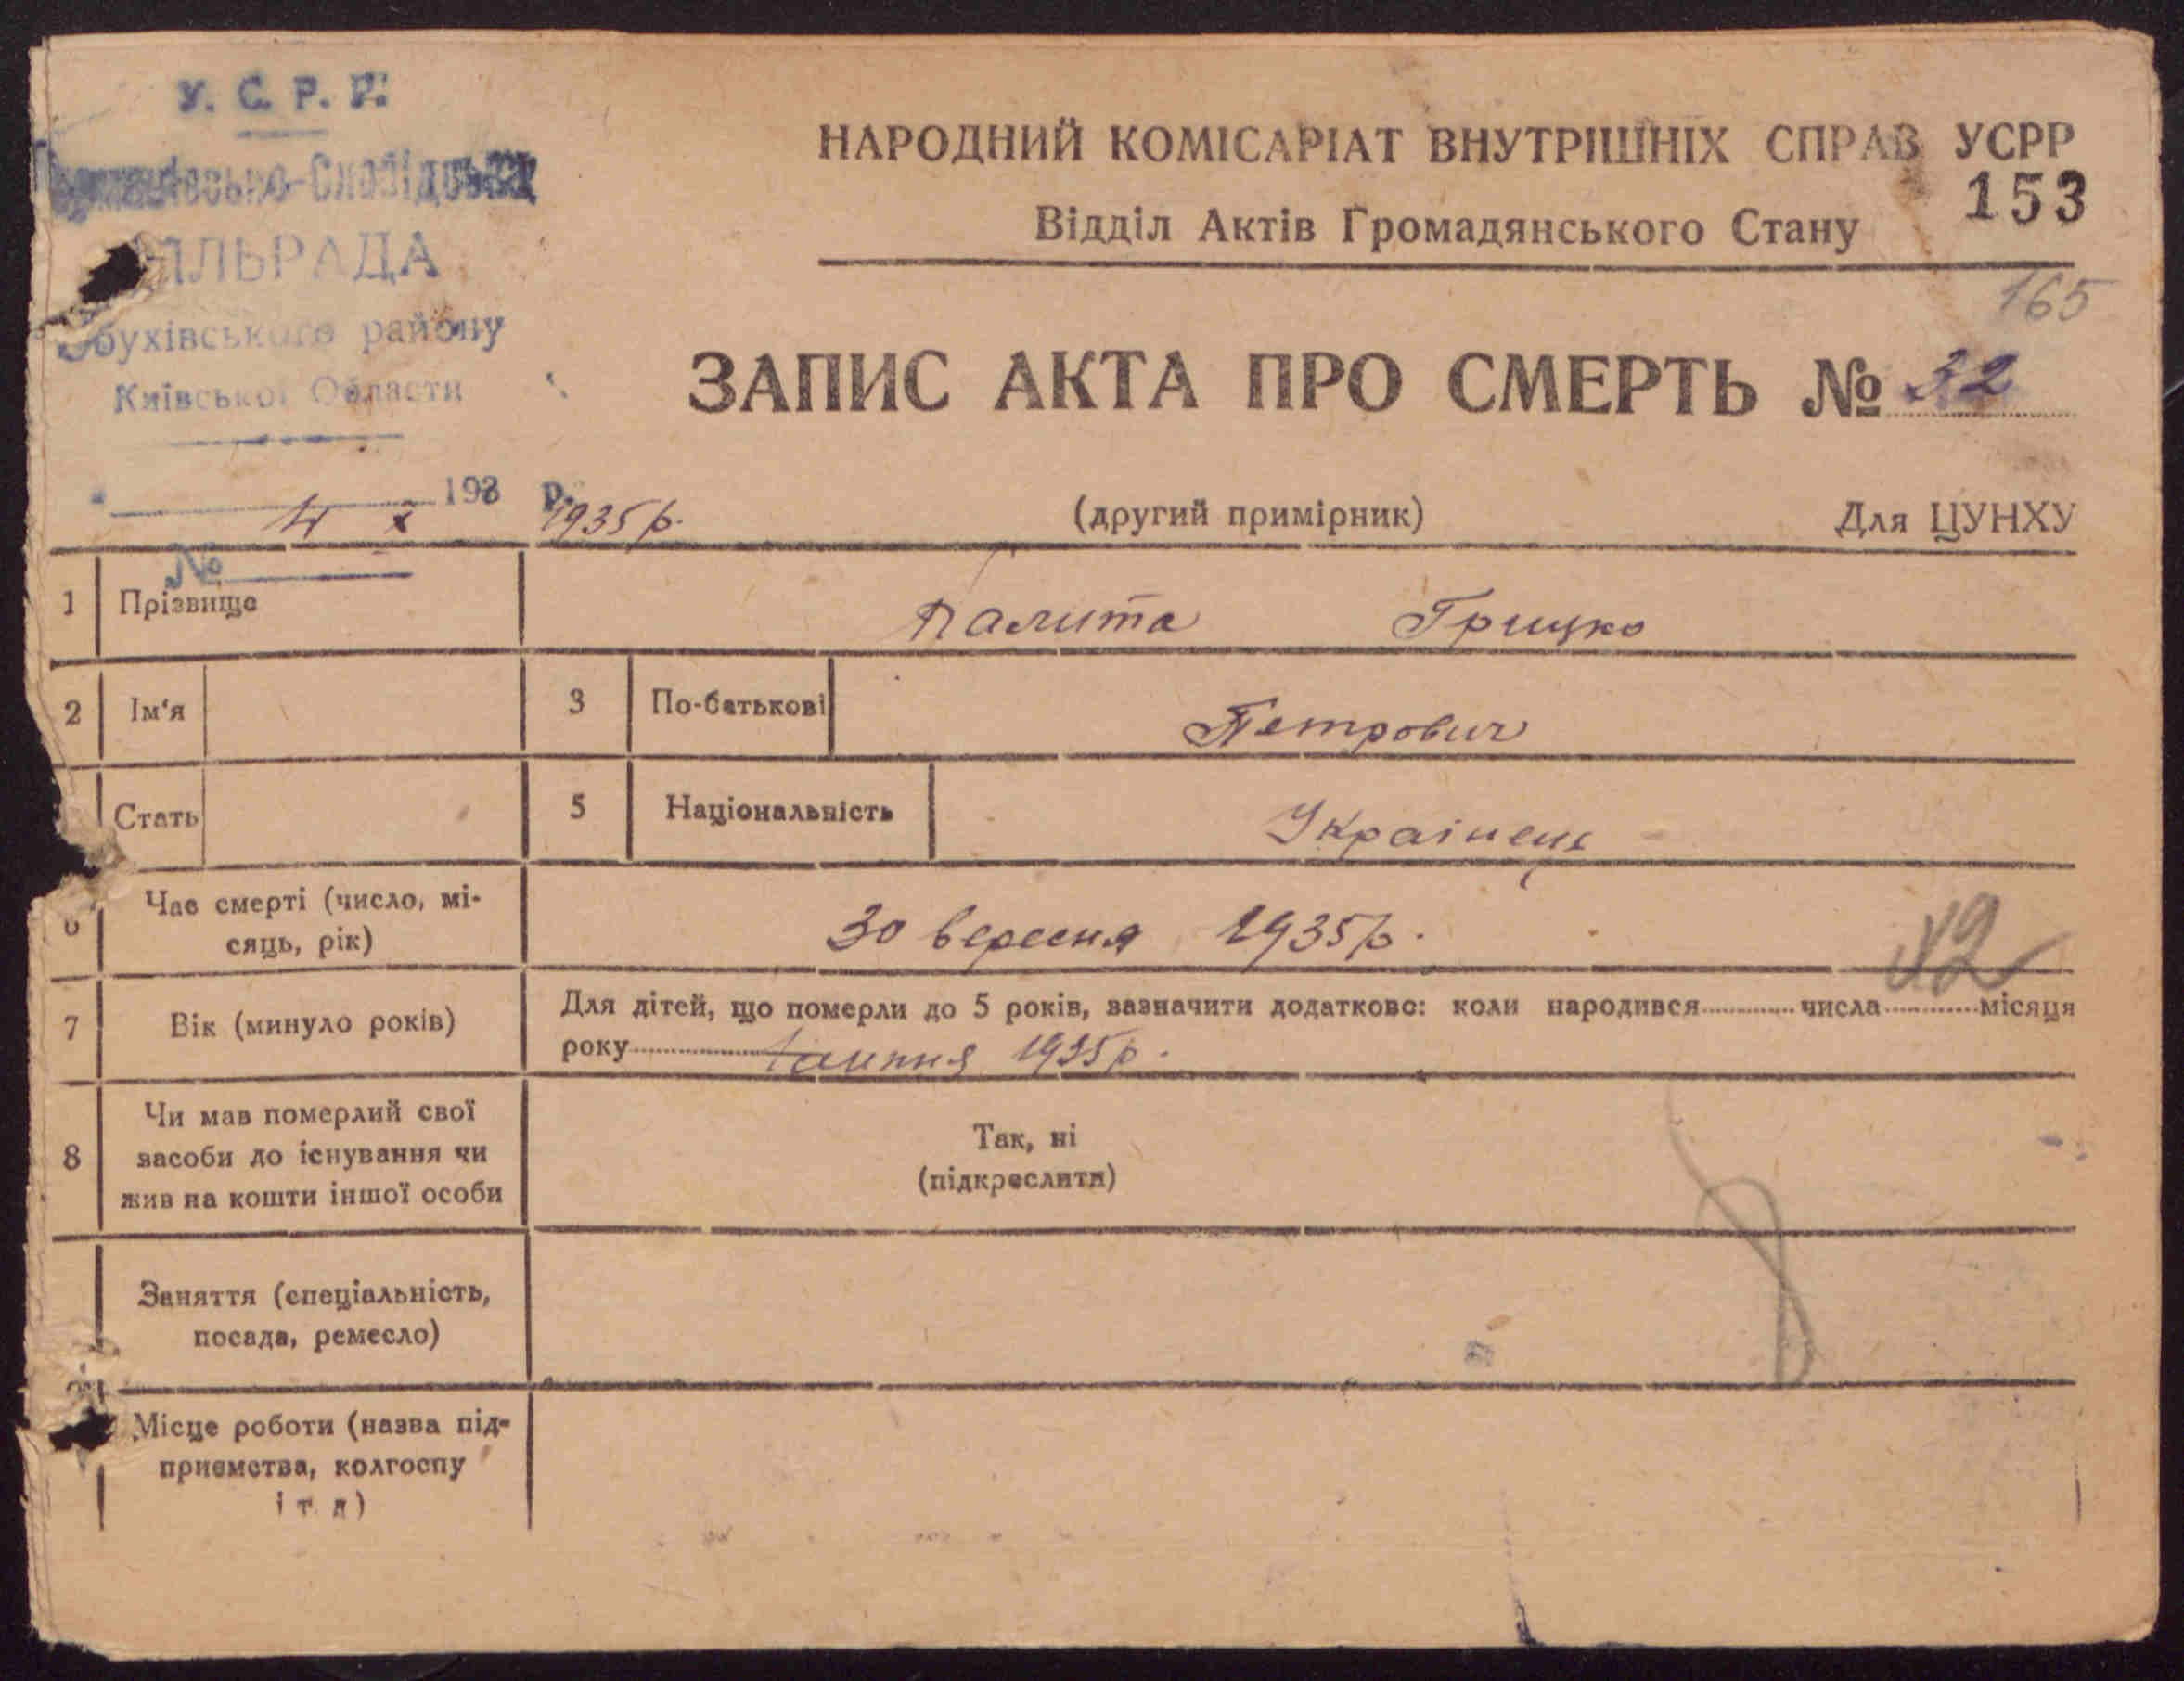 У. С. Р. Р.
СІЛЬРАДА
Обухівського району
Київської Области
НАРОДНИЙ КОМІСАРІАТ ВНУТРІШНІХ СПРАВ УСРР
153
Відділ Актів Громадянського Стану
165
ЗАПИС АКТА ПРО СМЕРТЬ № 32
193 р.
4 X 1935 р.
(другий примірник)
Для ЦУНХУ
№
1 Прізвище Палита Грицко
2 Ім'я 3 По-батькові Петрович
Стать 5 Національність Українець
6 Час смерті (число, мі-
сяць, рік) 30 вересня 1935 р.
7 Вік (минуло років) Для дітей, що померли до 5 років, зазначити додатково: коли народився числа місяця
року 1935 р.
8 Чи мав померлий свої
засоби до існування чи
жив на кошти іншої особи
Так, ні
(підкреслити)
Заняття (спеціальність,
посада, ремесло)
Місце роботи (назва під-
приємства, колгоспу
і т. д)